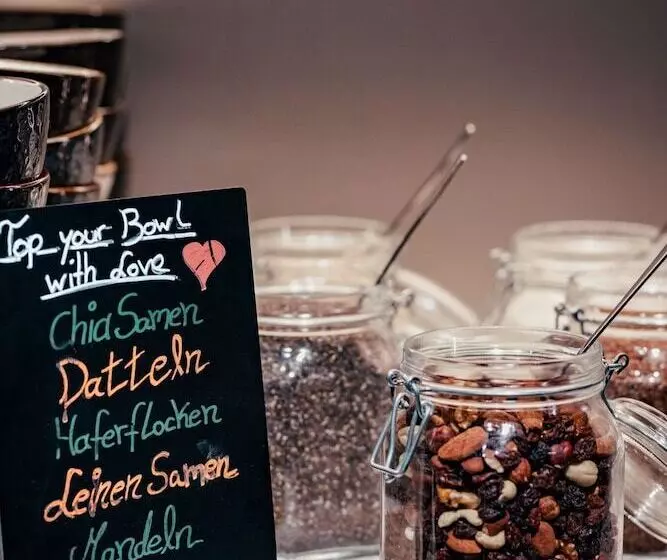 Top your Bowl
with Love
Chia Samen
Datteln
Haferflocken
Leinen Samen
Mandeln